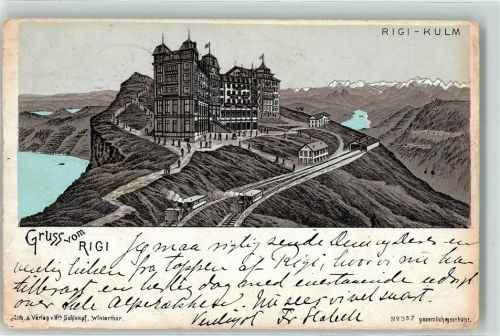 RIGI-KULM
Gruss vom RIGI
Jeg maa rigtig sende Dem og Deres en
venlig hilsen fra toppen af Rigi, hvor vi nu har
tilbragt en dag med enestaaende udsigt
over hele alperækken. Nu sees vi vel snart.
Venligst Fr
Lith. & Verlag v. Hch Schlumpf, Winterthur.
No 357 gesetzlich geschützt.